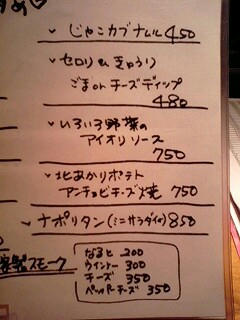 じゃこカブナムル 450
セロリ&きゅうり
ごまorチーズディップ
480
いろいろ野菜の
アイオリソース
750
北あかりポテト
アンチョビチーズ焼 750
ナポリタン(ミニサラダ付) 850
自家製スモーク
なると 200
ウインナー 300
チーズ 350
ペッパーチーズ 350